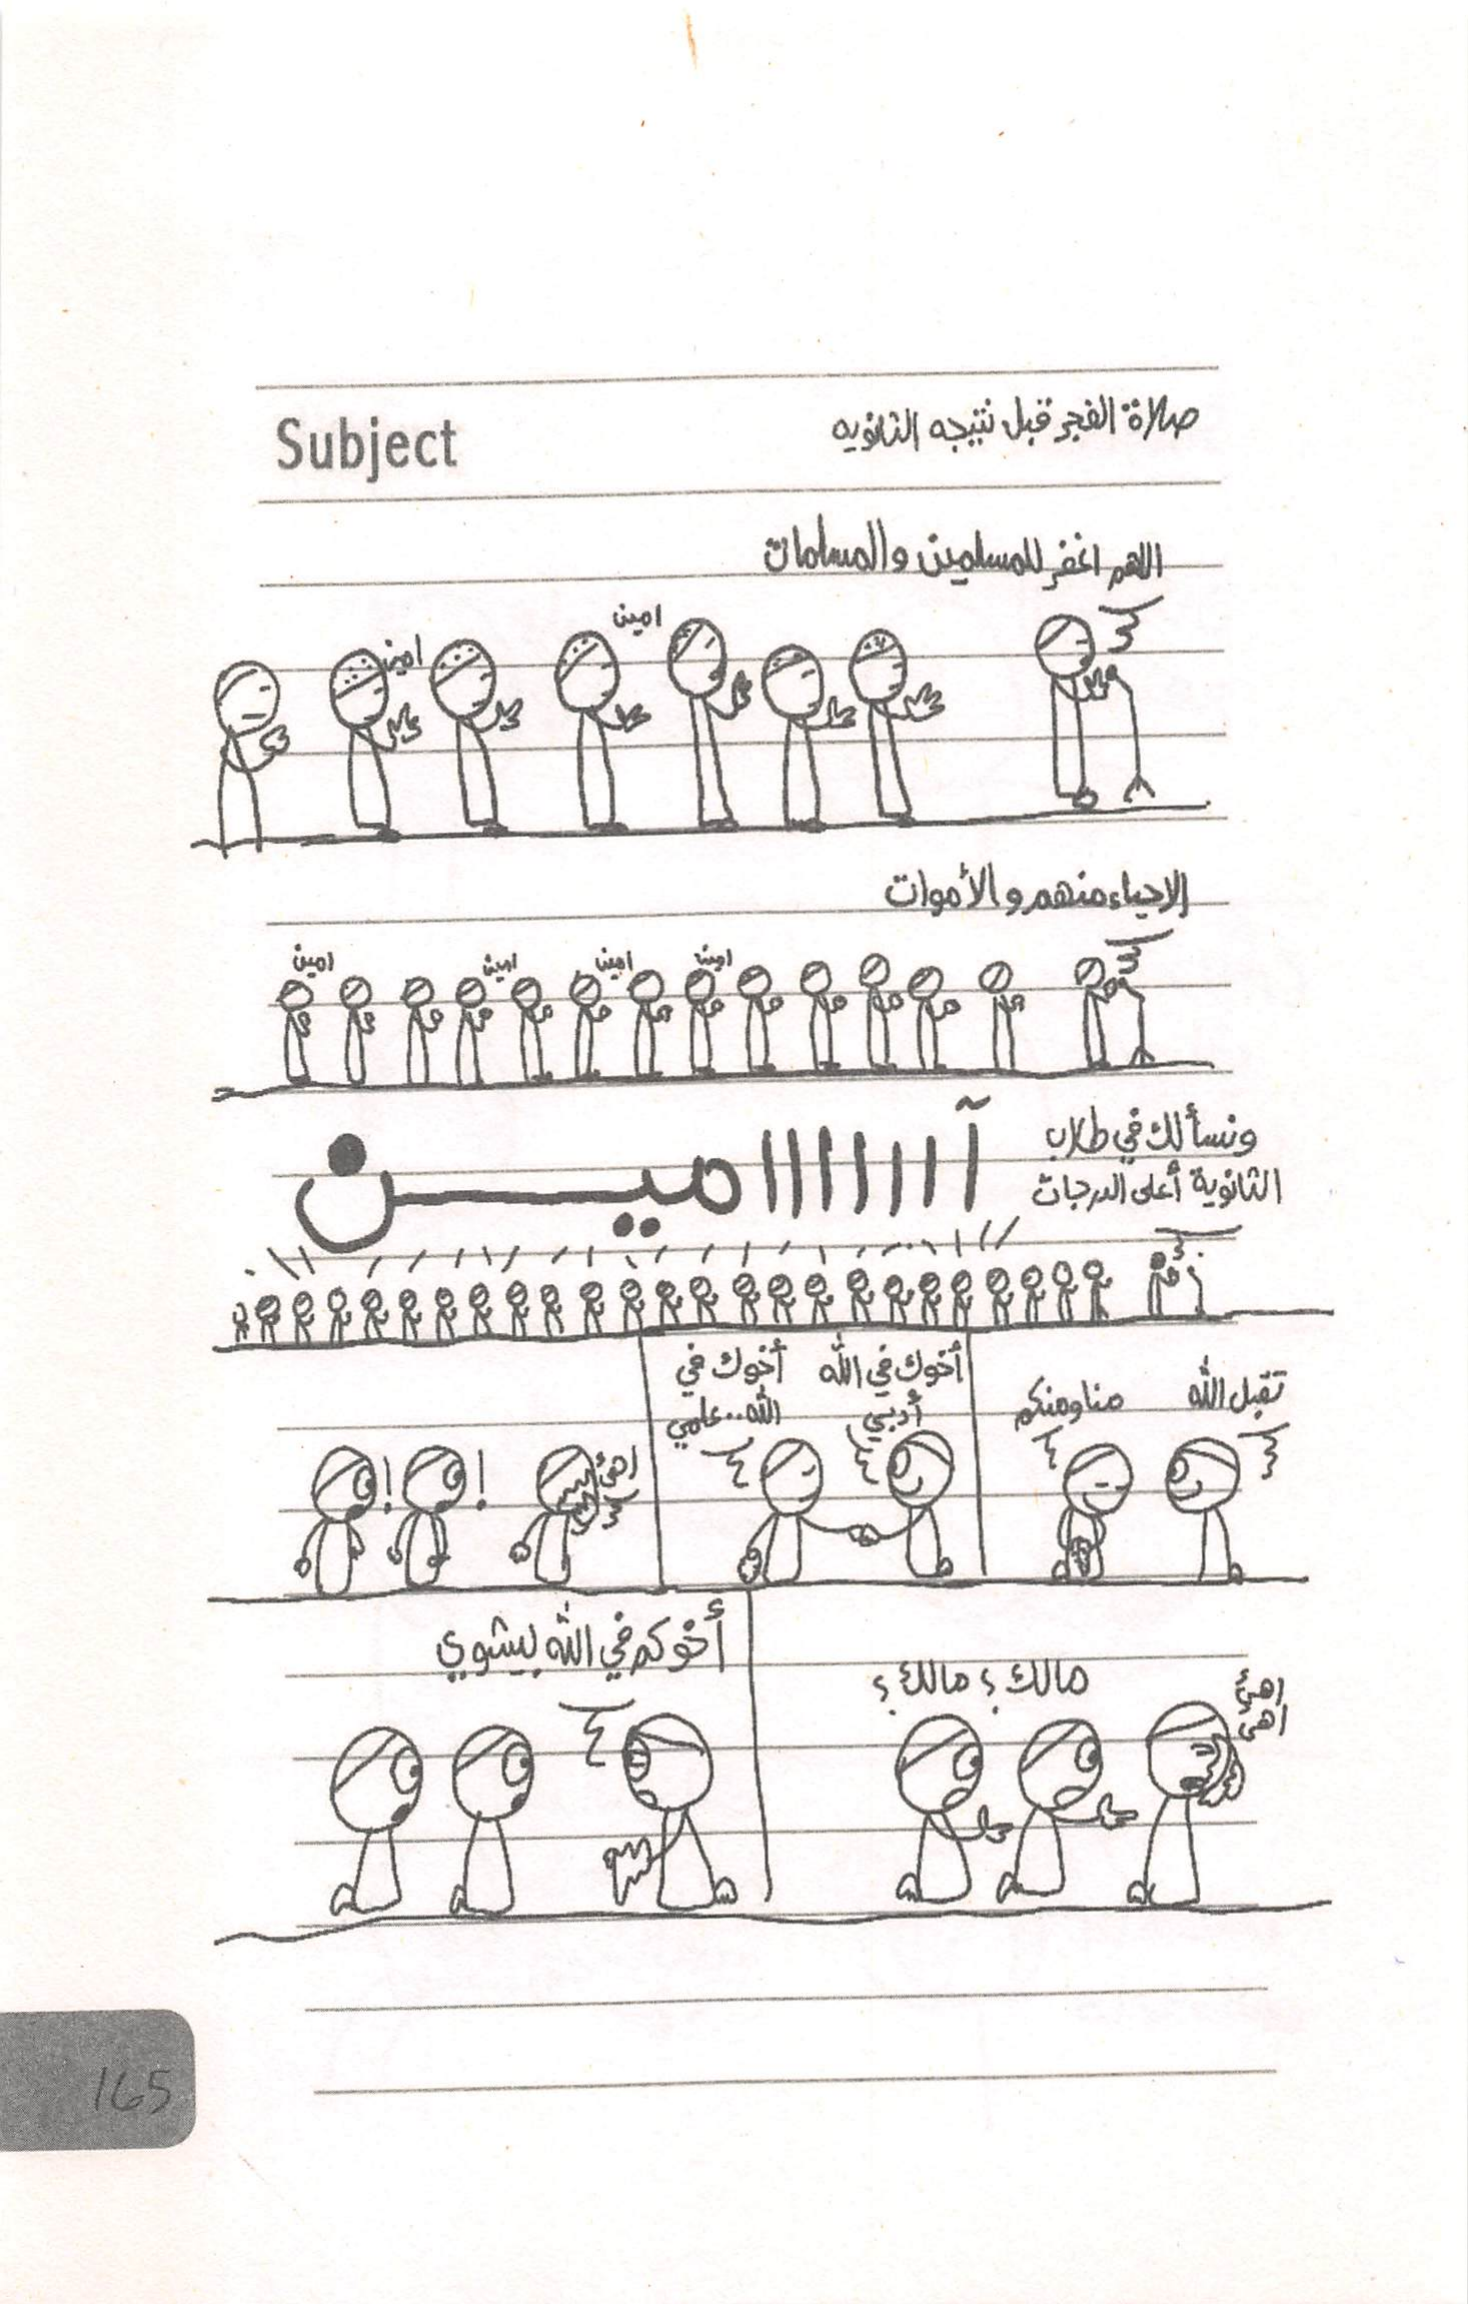 Subject
صلاة الفجر قبل نتيجه الثانويه
اللهم اغفر للمسلمين والمسلمات
امين
امين
الاحياء منهم والأموات
امين
امين
امين
امين
ونسألك في طلاب
الثانوية أعلى الدرجات
آاااااااميـــن
تقبل الله
منا ومنكم
أخوك في الله
أدبي
أخوك في
الله..علمي
اهئ
!
!
اهئ
اهئ
مالك؟ مالك؟
أخوكم في الله بيشوي
165